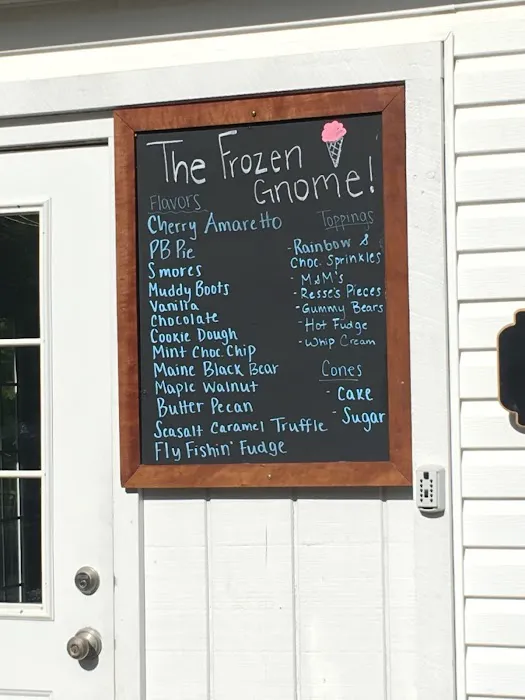 The Frozen
Gnome!
Flavors
Cherry Amaretto
PB Pie
Smores
Muddy Boots
Vanilla
Chocolate
Cookie Dough
Mint Choc Chip
Maine Black Bear
Maple Walnut
Butter Pecan
Seasalt Caramel Truffle
Fly Fishin' Fudge
Toppings
- Rainbow &
Choc. Sprinkles
- M&M's
- Resse's Pieces
- Gummy Bears
- Hot Fudge
- Whip Cream
Cones
- Cake
- Sugar